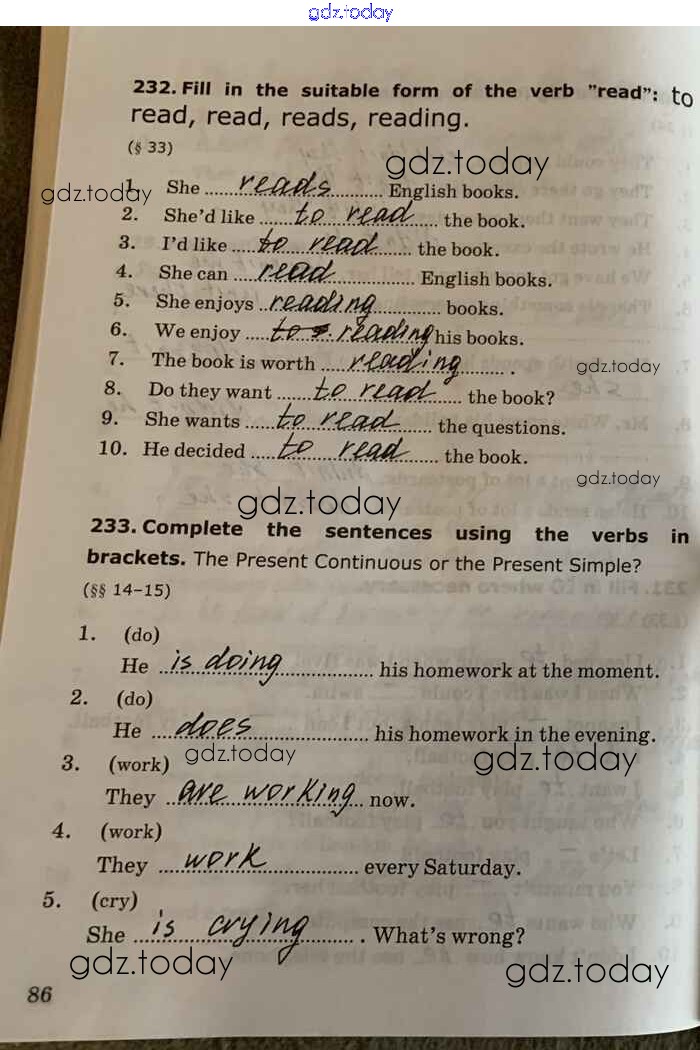 gdz.today
232. Fill in the suitable form of the verb "read": to
read, read, reads, reading.
(§ 33)
gdz.today
gdz.today
1. She reads English books.
2. She'd like to read the book.
3. I'd like to read the book.
4. She can read English books.
5. She enjoys reading books.
6. We enjoy to reading his books.
7. The book is worth reading.
gdz.today
8. Do they want to read the book?
9. She wants to read the questions.
10. He decided to read the book.
gdz.today
gdz.today
233. Complete the sentences using the verbs in
brackets. The Present Continuous or the Present Simple?
(§§ 14–15)
1. (do)
He is doing his homework at the moment.
2. (do)
He does his homework in the evening.
gdz.today
gdz.today
3. (work)
They are working now.
4. (work)
They work every Saturday.
5. (cry)
She is crying. What's wrong?
gdz.today
gdz.today
86